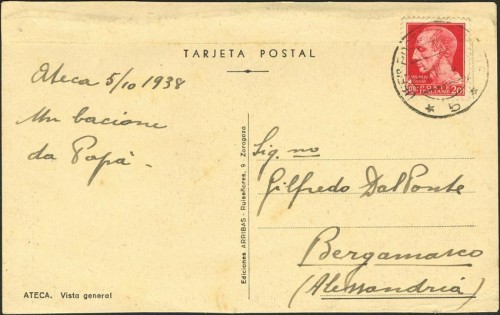 TARJETA POSTAL
Ateca 5/10 1938
Un bacione
da Papà.
Sig. no
Gilfredo Dal Ponte
Bergamasco
(Alessandria)
Ediciones ARRIBAS - Ruiseñores, 9 Zaragoza
ATECA. Vista general